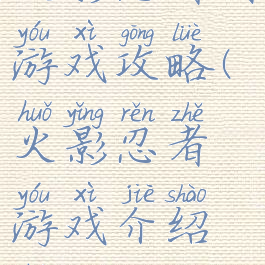 yóu xì gōng lüè
游戏攻略(
huǒ yǐng rěn zhě
火影忍者
yóu xì jiè shào
游戏介绍